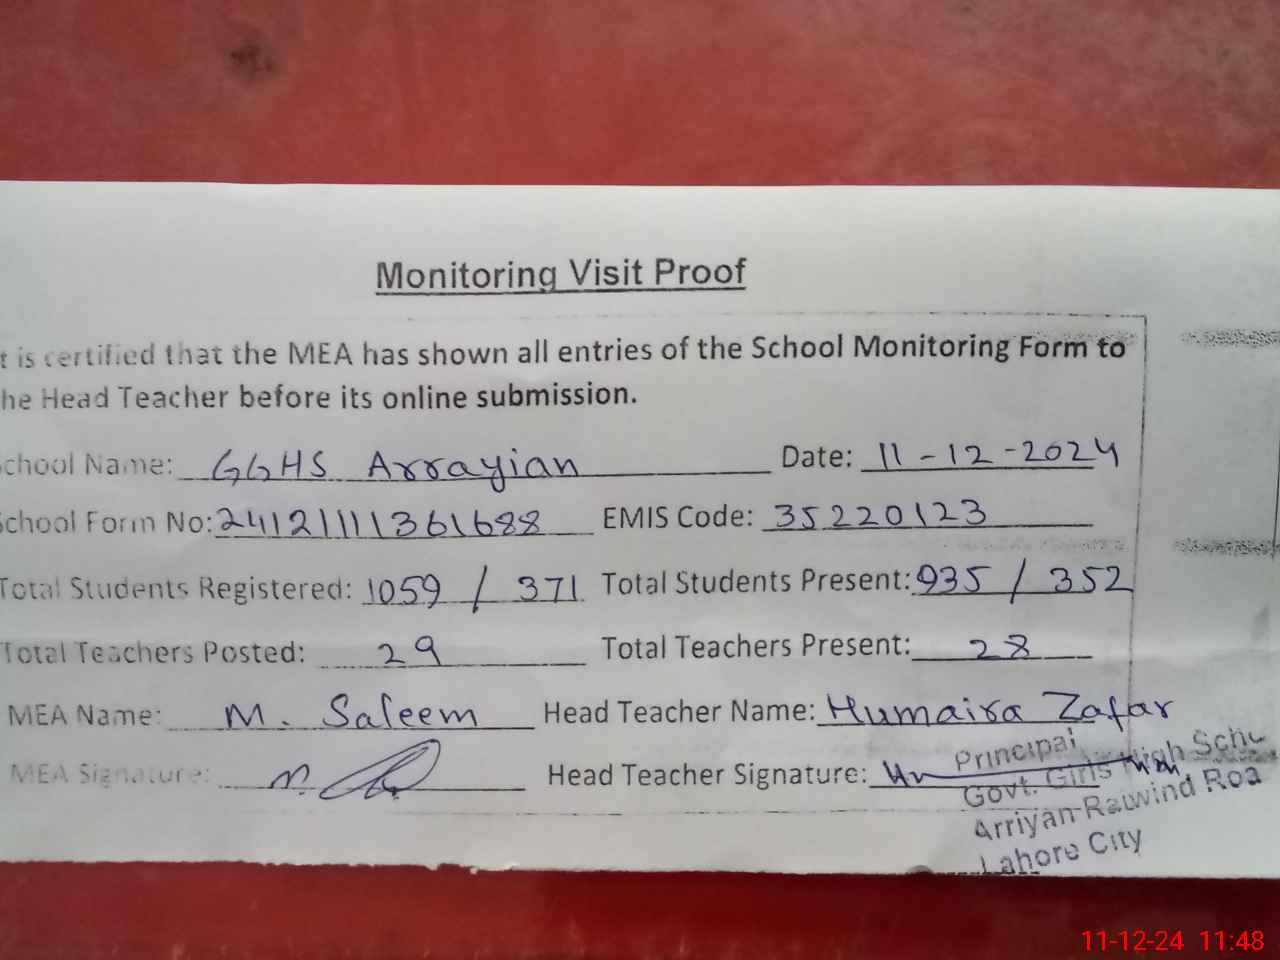 Monitoring Visit Proof
t is certified that the MEA has shown all entries of the School Monitoring Form to
he Head Teacher before its online submission.
chool Name: GGHS Arrayian Date: 11-12-2024
School Form No: 24121111361688 EMIS Code: 35220123
Total Students Registered: 1059 / 371 Total Students Present: 935 / 352
Total Teachers Posted: 29 Total Teachers Present: 28
MEA Name: M. Saleem Head Teacher Name: Humaira Zafar
MEA Signature: Head Teacher Signature:
Principal
Govt. Girls High Scho
Arriyan-Raiwind Roa
Lahore City
11-12-24 11:48